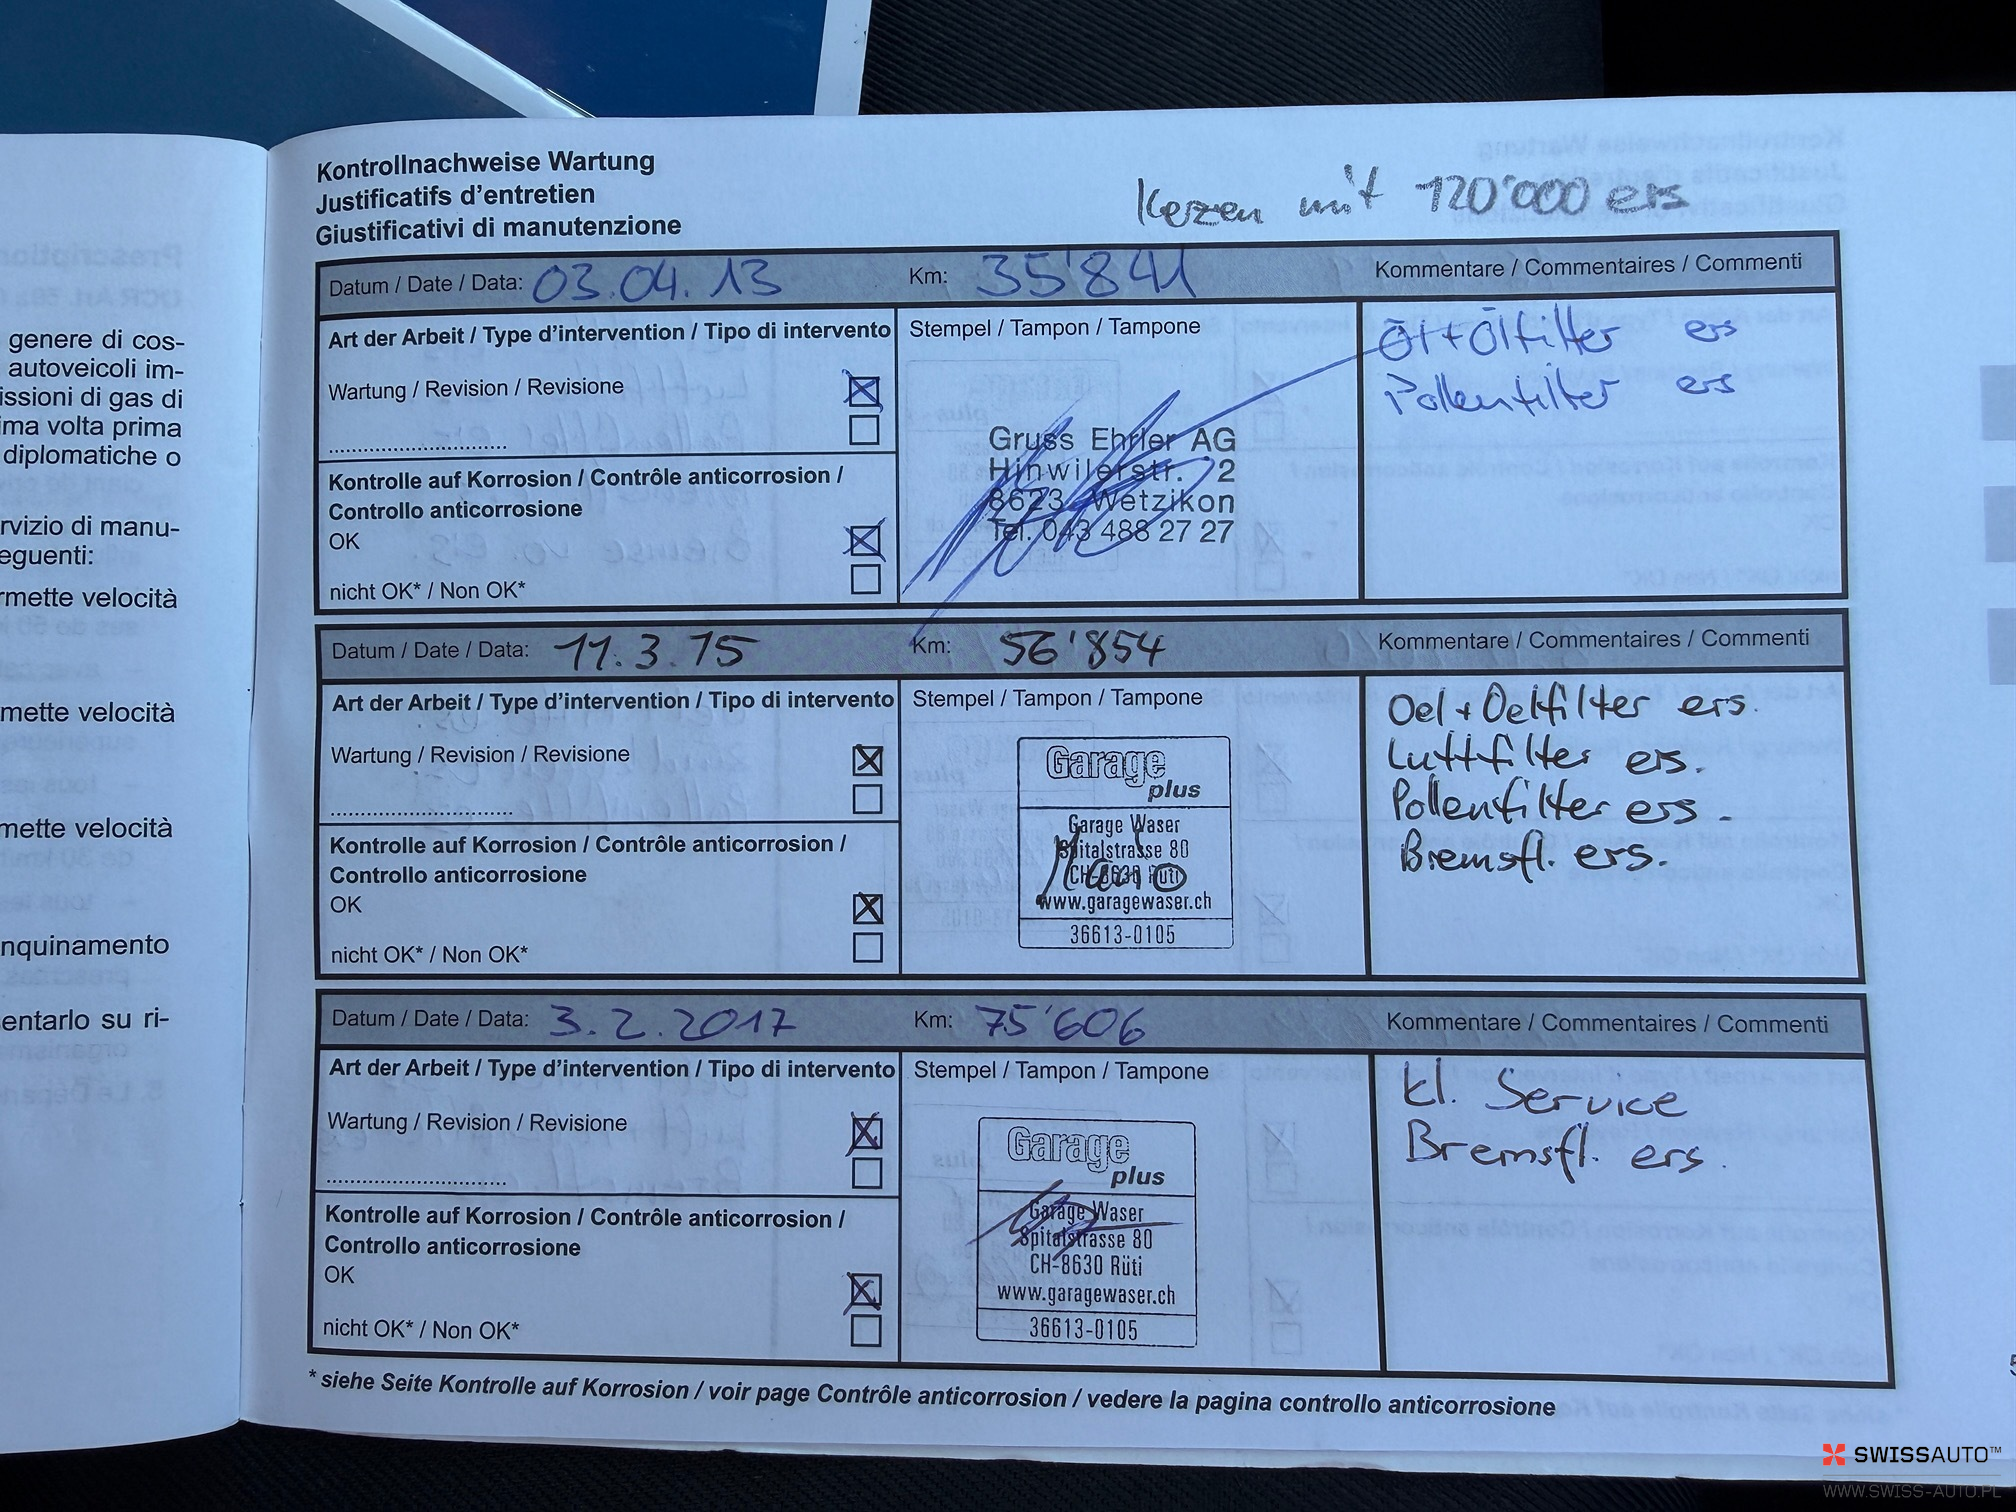 Kontrollnachweise Wartung
Justificatifs d'entretien
Giustificativi di manutenzione
Kerzen mit 120'000 ers
Datum / Date / Data: 03.04.13 Km: 35'841 Kommentare / Commentaires / Commenti
Art der Arbeit / Type d'intervention / Tipo di intervento
Wartung / Revision / Revisione
Kontrolle auf Korrosion / Contrôle anticorrosion /
Controllo anticorrosione
OK
nicht OK* / Non OK*
Stempel / Tampon / Tampone
Gruss Ehrler AG
Hinwilerstr. 2
8623 Wetzikon
Tel. 043 488 27 27
Öl + Ölfilter ers
Pollenfilter ers
Datum / Date / Data: 11.3.15 Km: 56'854 Kommentare / Commentaires / Commenti
Art der Arbeit / Type d'intervention / Tipo di intervento
Wartung / Revision / Revisione
Kontrolle auf Korrosion / Contrôle anticorrosion /
Controllo anticorrosione
OK
nicht OK* / Non OK*
Stempel / Tampon / Tampone
Garage
plus
Garage Waser
Spitalstrasse 80
CH-8630 Rüti
www.garagewaser.ch
36613-0105
Oel + Oelfilter ers.
Luftfilter ers.
Pollenfilter ers.
Bremsfl. ers.
Datum / Date / Data: 3.2.2017 Km: 75'606 Kommentare / Commentaires / Commenti
Art der Arbeit / Type d'intervention / Tipo di intervento
Wartung / Revision / Revisione
Kontrolle auf Korrosion / Contrôle anticorrosion /
Controllo anticorrosione
OK
nicht OK* / Non OK*
Stempel / Tampon / Tampone
Garage
plus
Garage Waser
Spitalstrasse 80
CH-8630 Rüti
www.garagewaser.ch
36613-0105
kl. Service
Bremsfl. ers.
* siehe Seite Kontrolle auf Korrosion / voir page Contrôle anticorrosion / vedere la pagina controllo anticorrosione
genere di cos-
autoveicoli im-
issioni di gas di
ima volta prima
diplomatiche o
rvizio di manu-
eguenti:
rmette velocità
mette velocità
mette velocità
nquinamento
entarlo su ri-
SWISSAUTO™
WWW.SWISS-AUTO.PL